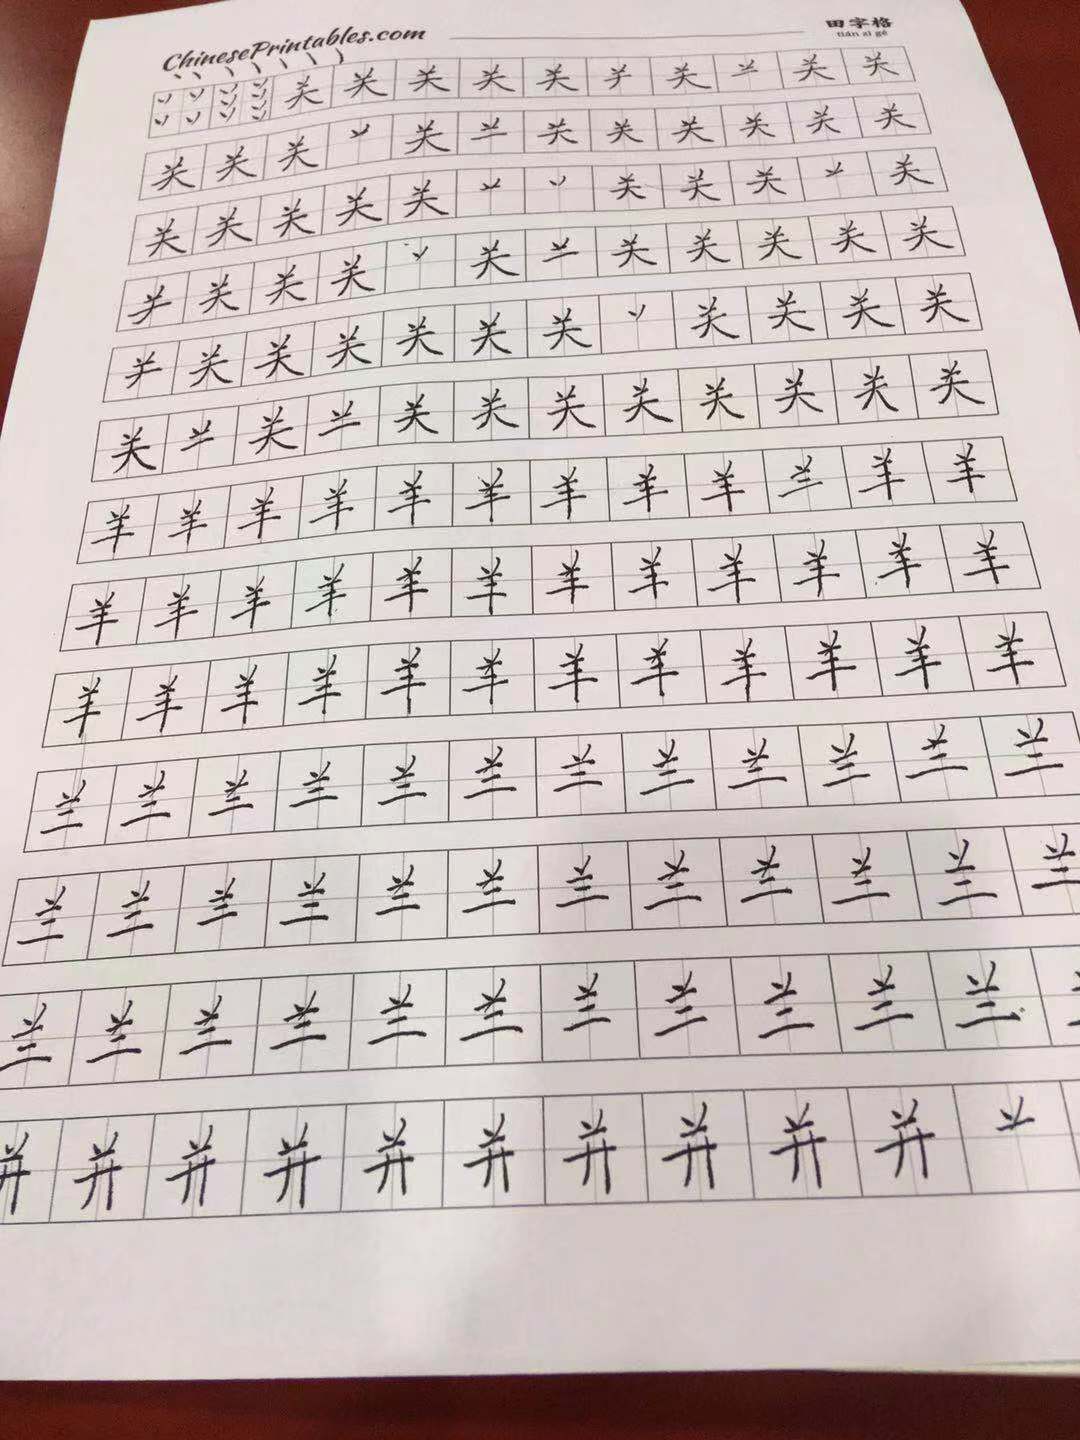 ChinesePrintables.com
田字格
tián zì gé
关关关关关关关关
关关关关关关关关关关
关关关关关关关关关
关关关关关关关关关
关关关关关关关关关关
关关关关关关关关关关
羊羊羊羊羊羊羊羊羊羊羊
羊羊羊羊羊羊羊羊羊羊羊羊
羊羊羊羊羊羊羊羊羊羊羊羊
兰兰兰兰兰兰兰兰兰兰兰兰
兰兰兰兰兰兰兰兰兰兰兰兰
兰兰兰兰兰兰兰兰兰兰兰
并并并并并并并并并并